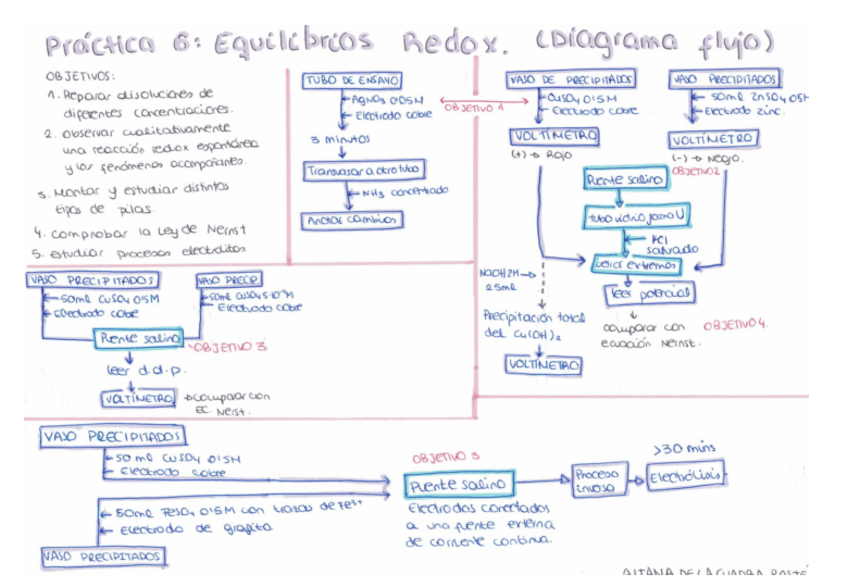 Práctica 6: Equilibrios Redox. (Diagrama flujo)
OBJETIVOS:
1. Reparar disoluciones de
diferentes concentraciones.
2. Observar cualitativamente
una reacción redox espontánea
y los fenómenos acompañantes.
3. Montar y estudiar distintos
tipos de pilas.
4. comprobar la Ley de Nernst
5. estudiar procesos electrolitos
TUBO DE ENSAYO
AgNO3 0'05M
Electrodo cobre
3 minutos
Transvasar a otro tubo
NH3 concentrado
Anotar cambios
OBJETIVO 1
VASO DE PRECIPITADOS
CuSO4 0'5M
Electrodo cobre
VOLTÍMETRO
(+) → Rojo
VASO PRECIPITADOS
50ml ZnSO4 0'5M
Electrodo zinc.
VOLTÍMETRO
(-) → Negro.
OBJETIVO 2
Puente salino
tubo vidrio forma U
KCl
saturado
extremos
leer potencial
comparar con
ecuación Nernst.
OBJETIVO 4.
NaOH 2M
25ml
Precipitación total
del Cu(OH)2
VOLTÍMETRO
VASO PRECIPITADOS
50ml CuSO4 0'5M
Electrodo cobre
VASO PRECIP
50ml CuSO4
Electrodo cobre
Puente salino
OBJETIVO 3
leer d.d.p.
VOLTÍMETRO
comparar con
EC. Nernst.
VASO PRECIPITADOS
50 ml CuSO4 0'5M
Electrodo cobre
50ml FeSO4 0'5M con trazas de Fe3+
Electrodo de grafito
VASO PRECIPITADOS
OBJETIVO 5
Puente salino
Electrodos conectados
a una fuente externa
de corriente continua.
Proceso
inverso
>30 mins
Electrólisis